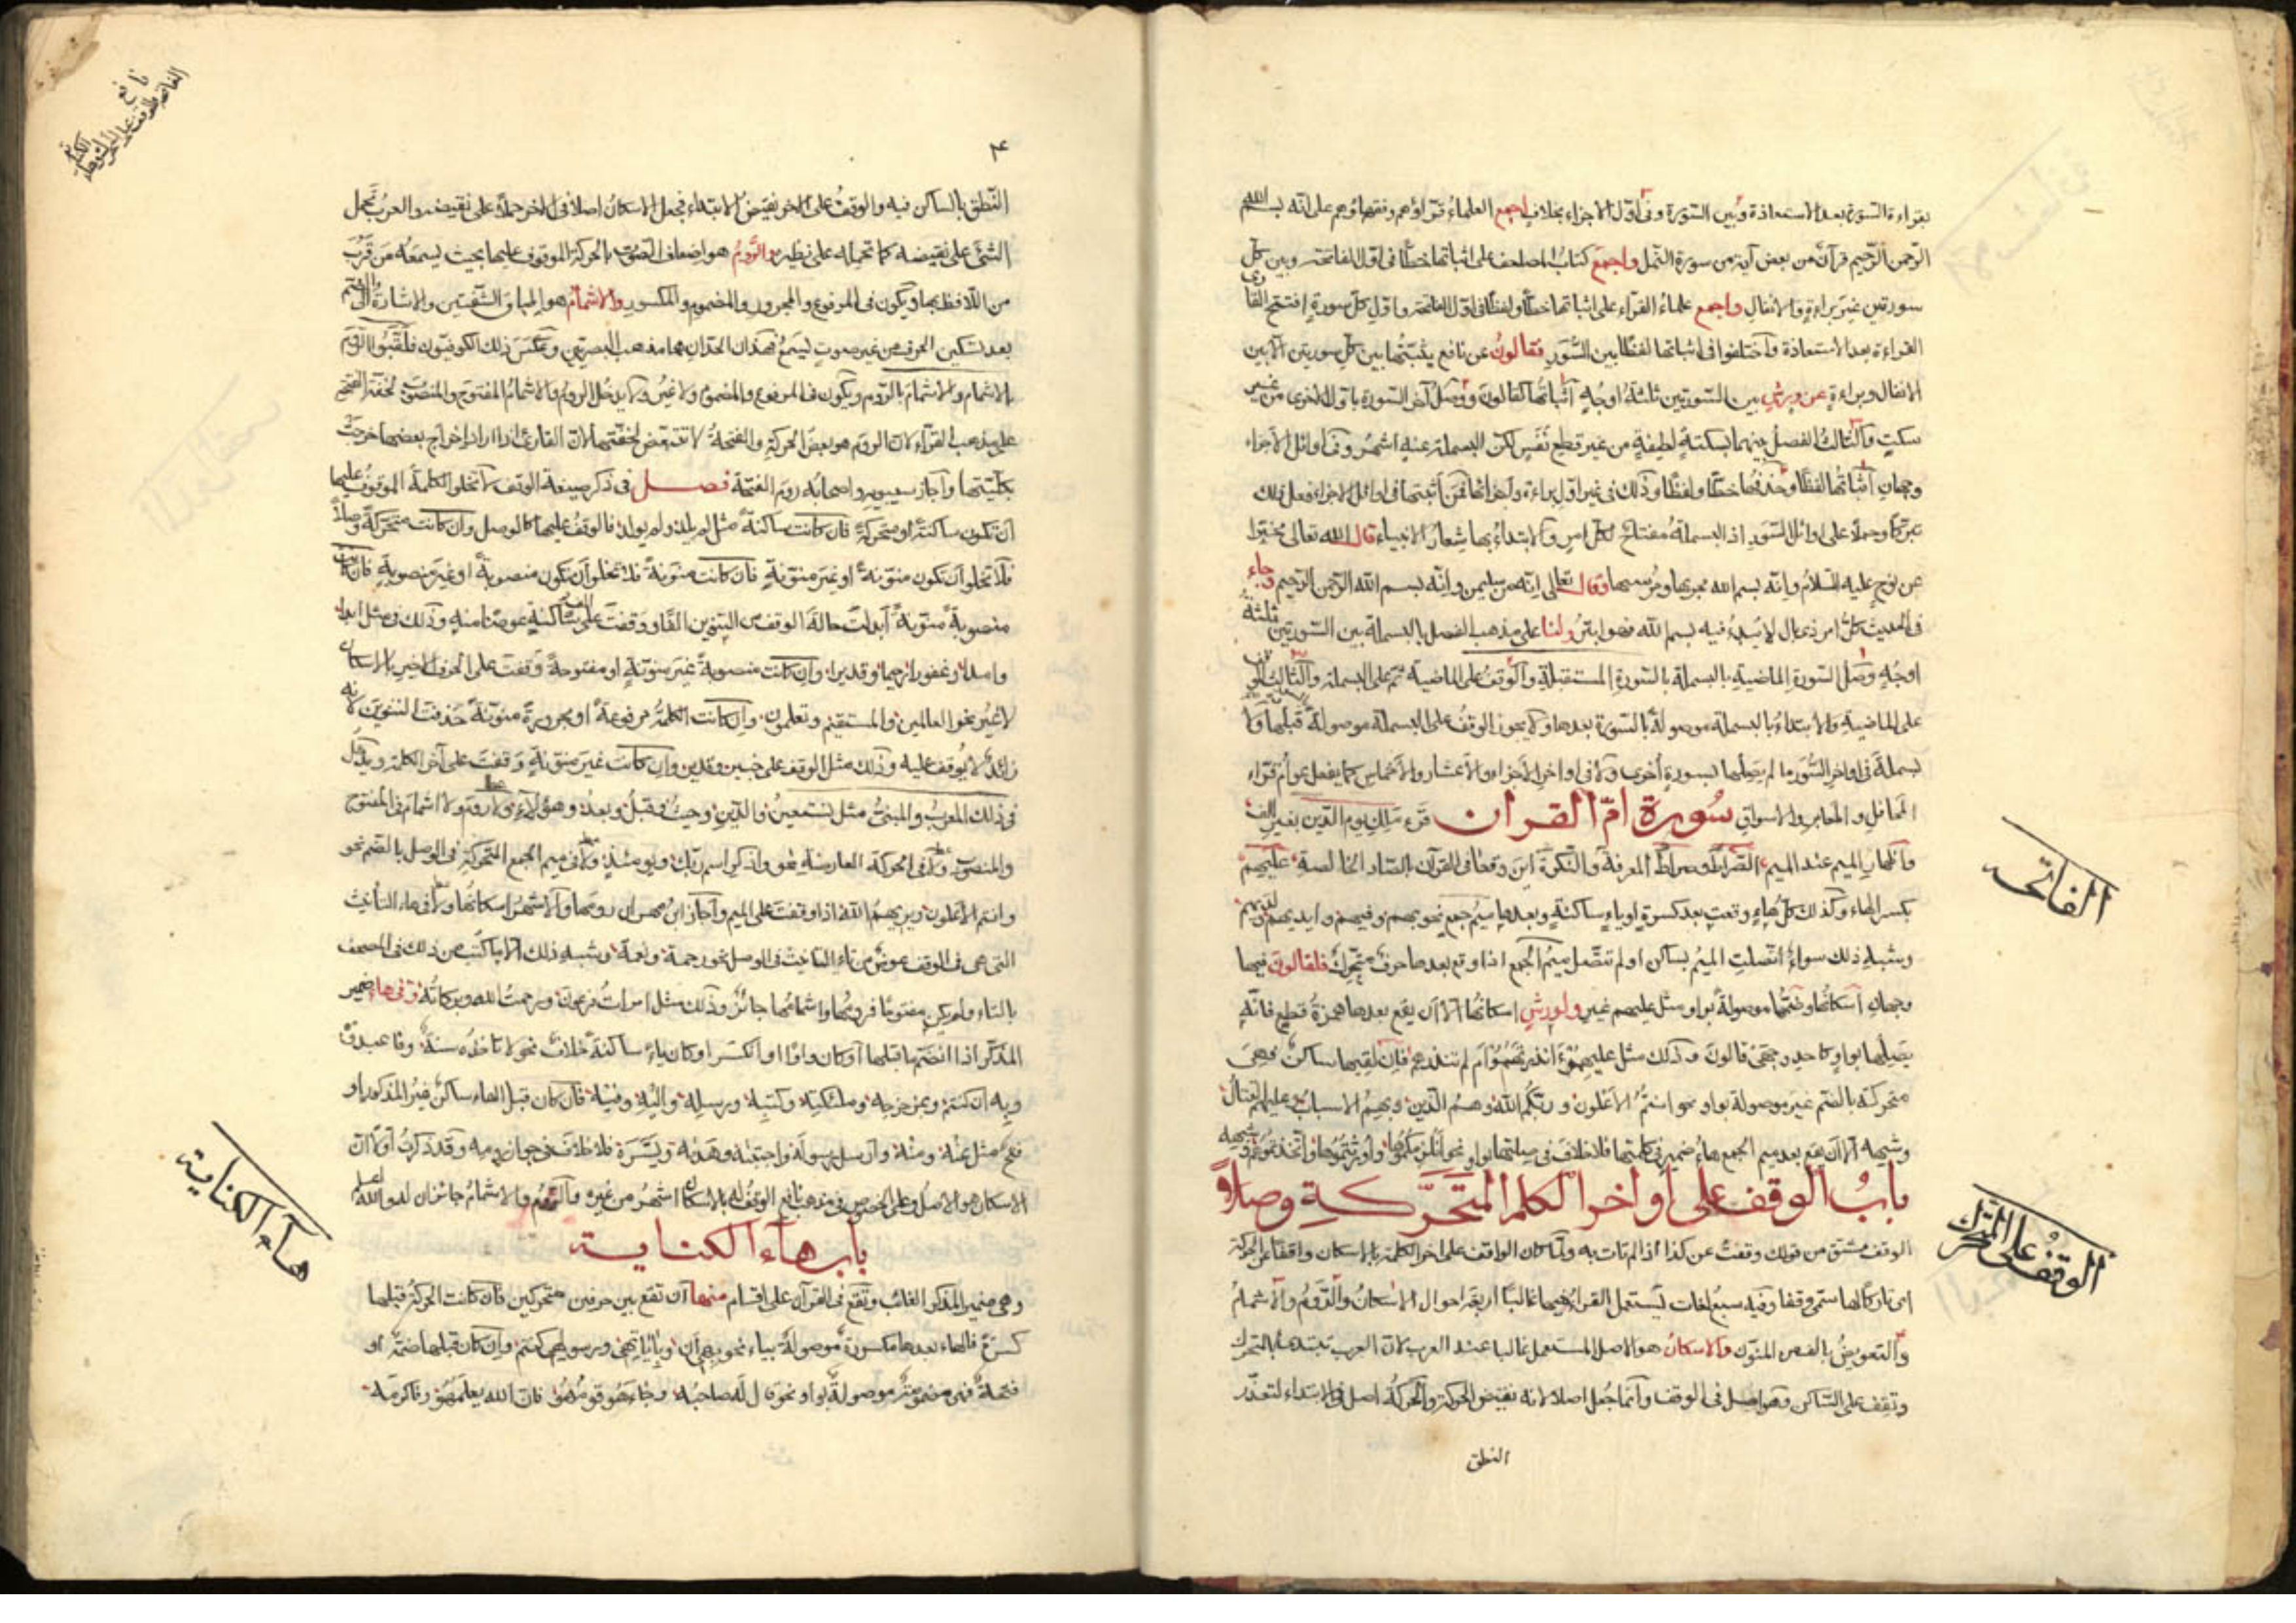 بقراءة السورة بعد الاستعاذة وبين السورة وفي اول الاجزاء بخلاف اجمع العلماء قراؤهم وفقهاؤهم على انه بسم الله
الرحمن الرحيم قرآن من بعض آية من سورة النمل واجمع كتاب المصاحف على اثباتها خطا في اول الفاتحة وبين كل
سورتين غير براءة والانفال واجمع علماء القراء على اثباتها خطا ولفظا في اول الفاتحة واول كل سورة افتتح القارئ
القراءة بعد الاستعاذة واختلفوا في اثباتها لفظا بين السور فقالون عن نافع يثبتها بين كل سورتين الا بين
الانفال وبراءة عن ورش بين السورتين ثلثة اوجه اثباتها كقالون ووصل آخر السورة باول الاخرى من غير
سكت والثالث الفصل بينهما بسكتة لطيفة من غير قطع نفس لكن البسملة عنه اشهر وفي اوائل الاجزاء
وجهان اثباتها لفظا وحذفها خطا ولفظا وذلك في غير اول براءة واجزائها فمن اثبتها في اوائل الاجزاء فعل ذلك
تبركا وحملا على اوائل السور اذ البسملة مفتاح لكل امر والابتداء بها شعار الانبياء قال الله تعالى مخبرا
عن نوح عليه السلام وانه بسم الله مجريها ومرسيها وقال تعالى انه من سليمن وانه بسم الله الرحمن الرحيم وجاء
في الحديث كل امر ذي بال لا يبدء فيه بسم الله فهو ابتر ولنا على مذهب الفصل بالبسملة بين السورتين ثلثة
اوجه وصل السورة الماضية بالبسملة بالسورة المستقبلة والوقف على الماضية ثم على البسملة والثالث الوقف
على الماضية والابتداء بالبسملة موصولة بالسورة بعدها ولا يجوز الوقف على البسملة موصولة قبلها ولا
بسملة في اواخر السور ما لم يصلها بسورة اخرى ولا في اواخر الاجزاء والاعشار والاخماس كما يفعل عوام قراء
المحافل والمقابر والاسواق سورة ام القران قرء ملك يوم الدين بغير الف
واظهار الميم عند الميم الصراط وصراط المعرفة والنكرة اين وقعا في القرآن بالصاد الخالصة عليهم
بكسر الهاء وكذلك كل هاء وقعت بعد كسرة او ياء ساكنة وبعدها ميم جمع نحو بهم وفيهم وايديهم ولديهم
وشبه ذلك سواء اتصلت الميم بساكن او لم تتصل ميم الجمع اذا وقع بعدها حرف متحرك فلقالون فيها
وجهان اسكانها وضمها موصولة بواو مثل عليهم غير ولورش اسكانها الا ان يقع بعدها همزة قطع فانه
يصلها بواو كاحد وجهي قالون وذلك مثل عليهمو ءانذرتهمو ام لم تنذرهم فان لقيها ساكن فهي
متحركة بالضم غير موصولة بواو نحو انتم الاعلون وربكم الله وهم الذين وبهم الاسباب وعليهم القتال
وشبهه الا ان يقع بعد ميم الجمع هاء ضمير في كلمتها فلا خلاف في صلتها بواو نحو انلزمكموها واورثتموها واتخذتموه وشبهه
باب الوقف على اواخر الكلم المتحركة وصلاً
الوقف مشتق من قولك وقفت عن كذا اذا لم تات به ولما كان الواقف على اخر الكلمة بالاسكان واقفا عن الحركة
اي تاركا لها سمي وقفا وفيه سبع لغات يستعمل القراء فيها غالبا اربعة احوال الاسكان والروم والاشمام
والتعويض بالف من المنون والاسكان هو الاصل المستعمل غالبا عند العرب لان العرب تبتدء بالمتحرك
وتقف على الساكن وهو اصل في الوقف وانما جعل اصلا لانه نقيض الحركة والحركة اصل في الابتداء لتعذر
النطق
الفاتحه
الوقف على المتحرك
نافع
٤
النطق بالساكن فيه والوقف على الاخر نقيض الابتداء فجعل الاسكان اصلا في الاخر حملا على نقيضه والعرب تحمل
الشئ على نقيضه كما تحمله على نظيره والروم هو اضعاف الصوت بالحركة الموقوف عليها بحيث يسمعه من قرب
من اللافظ بها ويكون في المرفوع والمجرور والمضموم والمكسور والاشمام هو اطباق الشفتين والاشارة الى الضم
بعد تسكين الحرف من غير صوت يسمع فهذان الحدان هما مذهب البصريين وعكس ذلك الكوفيون فلقبوا الروم
بالاشمام والاشمام بالروم ويكون في المرفوع والمضموم ولا غير ولا يدخل الروم والاشمام المفتوح والمنصوب لخفة الفتح
على مذهب القراء لان الروم هو بعض الحركة والفتحة لا تتبعض لخفتها لان القارئ اذا اراد اخراج بعضها خرجت
بكليتها واجاز سيبويه واصحابه روم الفتحة فصل في ذكر صيغة الوقف لا تخلو الكلمة الموقوف عليها
ان تكون ساكنة او متحركة فان كانت ساكنة مثل لم يلد ولم يولد فالوقف عليها كالوصل وان كانت متحركة وصلاً
فلا تخلو ان تكون منونة او غير منونة فان كانت منونة فلا تخلو ان تكون منصوبة او غير منصوبة فان كانت
منصوبة منونة ابدلت حالة الوقف من التنوين الفا ووقفت على الف ساكنة عوضا منه وذلك مثل ابدا
وامدا وغفورا رحيما وقديرا وان كانت منصوبة غير منونة او مفتوحة وقفت على الحرف الاخير بالاسكان
لا غير نحو العالمين والمستقيم وتعلمون وان كانت الكلمة مرفوعة او مجرورة منونة حذفت التنوين لانه
زائد لا يوقف عليه وذلك مثل الوقف على خبير وقدير وان كانت غير منونة وقفت على آخر الكلمة ويدخل
في ذلك المعرب والمبني مثل نستعين والدين وحيث وقبل وبعد وهؤلاء ولا روم ولا اشمام في المفتوح
والمنصوب ولا في الحركة العارضة نحو واذكر اسم ربك ويومئذ ولا في ميم الجمع المتحركة في الوصل بالضم نحو
وانتم الاعلون ويريهم الله اذا وقفت على الميم واجاز ابن مهران رومها والاشهر اسكانها ولا في هاء التانيث
التي هي في الوقف عوض من تاء التانيث في الوصل نحو رحمة ونعمة وشبه ذلك الا ما كتب من ذلك في المصحف
بالتاء ولم يكن مفتوحا فرومها واشمامها جائز وذلك مثل امرات فرعون ورحمت الله وبركاته وفي هاء ضمير
المذكر اذا انضم ما قبلها او كان واوا او انكسر او كان ياء ساكنة خلاف نحو لا تاخذه سنة وما عبدوه
وبه ان كنتم وبمزحزحه وملئكته وكتبه ورسله واليه وفيه فان كان قبل الهاء ساكن غير المذكور او
فتح مثل عنه ومنه وارسل رسوله واجتبيه وهديه ويسره فلا خلاف في جواز رومه وقد ذكرت اولا ان
الاسكان هو الاصل وعلى الخصوص في مذهب نافع الوقف له بالاسكان اشهر من غيره والروم والاشمام جائزان له والله اعلم
باب هاء الكناية
وهي ضمير المذكر الغائب وتقع في القرآن على اقسام منها ان تقع بين حرفين متحركين فان كانت الحركة قبلها
كسرة فالهاء بعدها مكسورة موصولة بياء نحو بهي ان وباياتهي وبرسولهي كنتم وان كان قبلها ضمة او
فتحة فهي مضمومة موصولة بواو نحو قال له صاحبه وجاءهو قومهو فان الله يعلمهو وفاكرمه
هاء الكناية